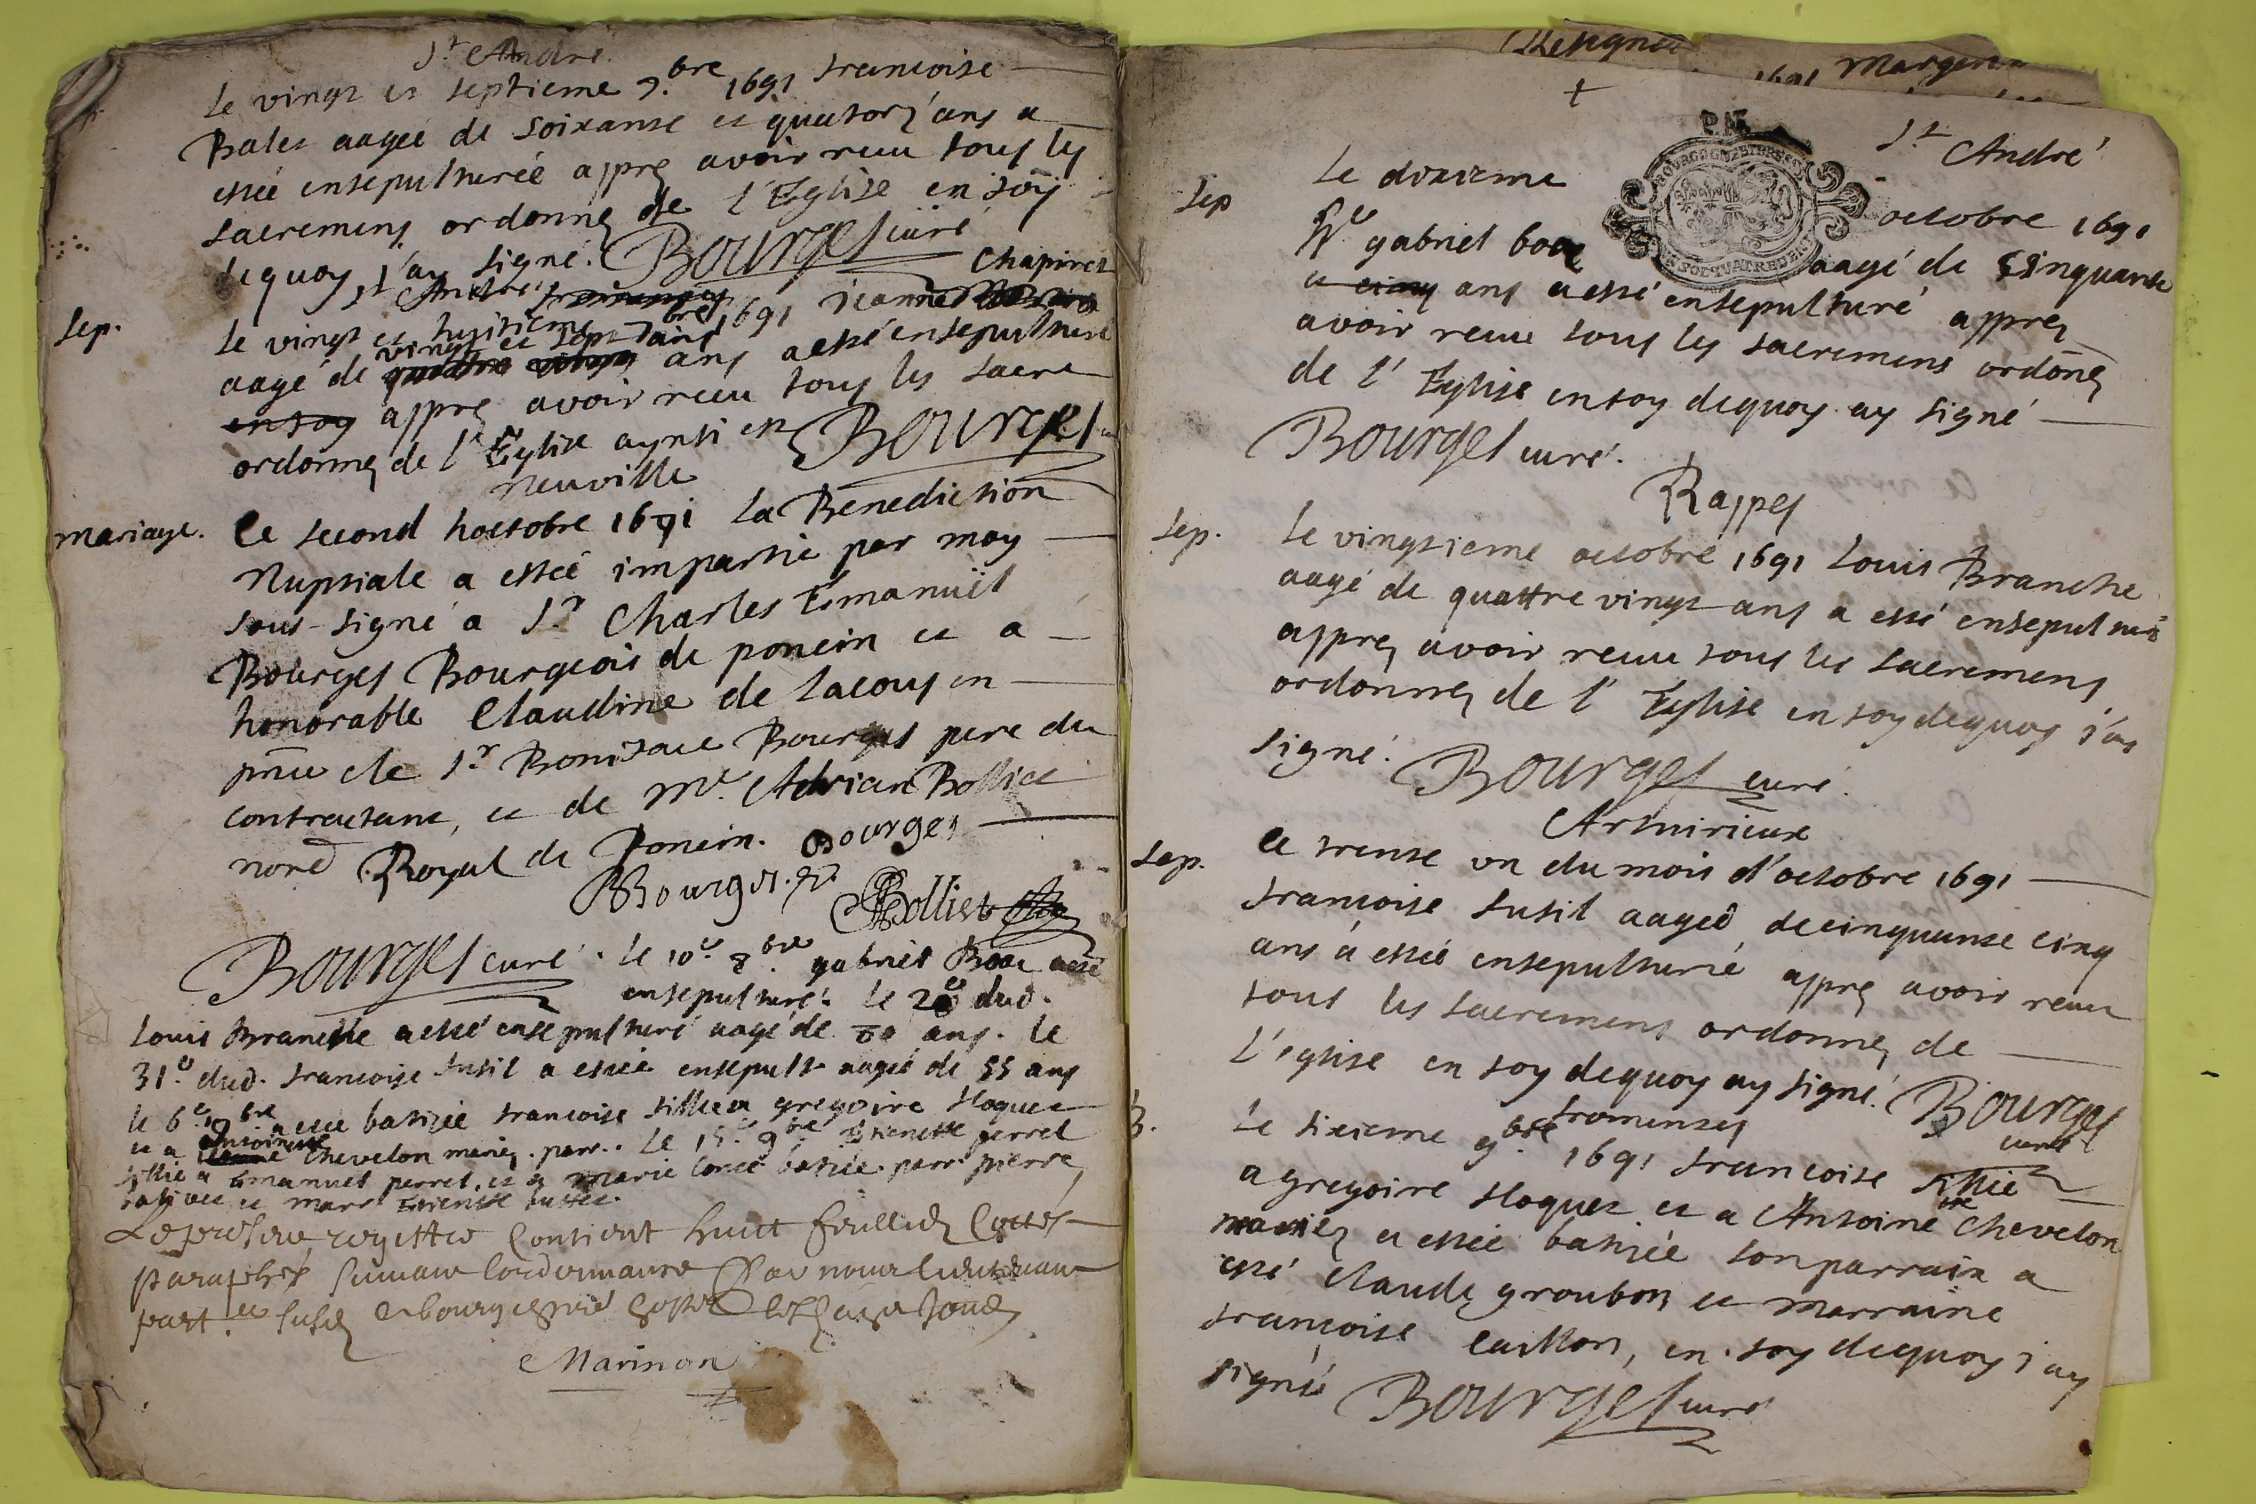 St André
Le vingt et septieme 7.bre 1691 francoise
Balet aagée de soixante et quatorz' ans a
estée ensepulturée appres avoir receu tous les
sacremens ordonnez de l'Eglise en foy
dequoy j'ay signé. Bourges curé
St André Chapiret
Sep. Le vingt et huitieme 7bre 1691 Jeanne
vingt et sept ans
aagé de quattre vingt ans a esté ensepulture
en foy appres avoir receu tous les sacre
ordonnez de l'Eglise aynsi est Bourges
Neuville
mariage. Ce second hoctobre 1691 La Benediction
Nuptiale a estée impartie par moy
sous-signé a Sr Charles Emanuël
Bourges Bourgeois de poncin et a
honorable Claudine de Lacous en
pnce de Sr Boniface Bourges pere du
contractant, et de Mr. Adrian Bolliet
nore Royal de Poncin. Bourges
BBourges. p.
Bolliet
Bourges curé. Le 10.e 8.bre gabriel Boue a esté
ensepulturé. le 20e dud.
Louis Branche a esté ensepulturé aagé de 80 ans. le
31.e dud. francoise futil a estée ensepult aagée de 55 ans
le 6e 9bre a estée batizée francoise fillie a gregoire floquet
et a Antoinette chevelon mariez. parr. Le 15.e 9bre Estienette perret
fillie a Emanuel perret, et a marie batizée parr pierre
Marinon
+
St André
Sep Le dixieme octobre 1691
gabriel boue aagé de cinquante
et cinq ans a esté ensepulturé appres
avoir receu tous les sacremens ordonez
de l'Eglise en foy dequoy ay signé
Bourges curé.
Rappes
Sep. Le vingtieme octobre 1691 Louis Branche
aagé de quattre vingt ans a esté ensepulturé
appres avoir receu tous les sacremens
ordonnez de l'Eglise en foy dequoy j'ay
signé. Bourges curé.
Arturieux
Sep. Ce trente un du mois d'octobre 1691
francoise futil aageé de cinquante cinq
ans a estée ensepulturée appres avoir receu
tous les sacremens ordonnez de
L'eglise en foy dequoy ay signé. Bourges
curé
fromentes
B. Le sixieme 9.bre 1691 francoise fillie
a gregoire floquet et a Antoinette chevelon
mariez a estée batizée son parrain a
esté claude groubon et marraine
françoise caillon, en foy dequoy j'ay
signé Bourges curé